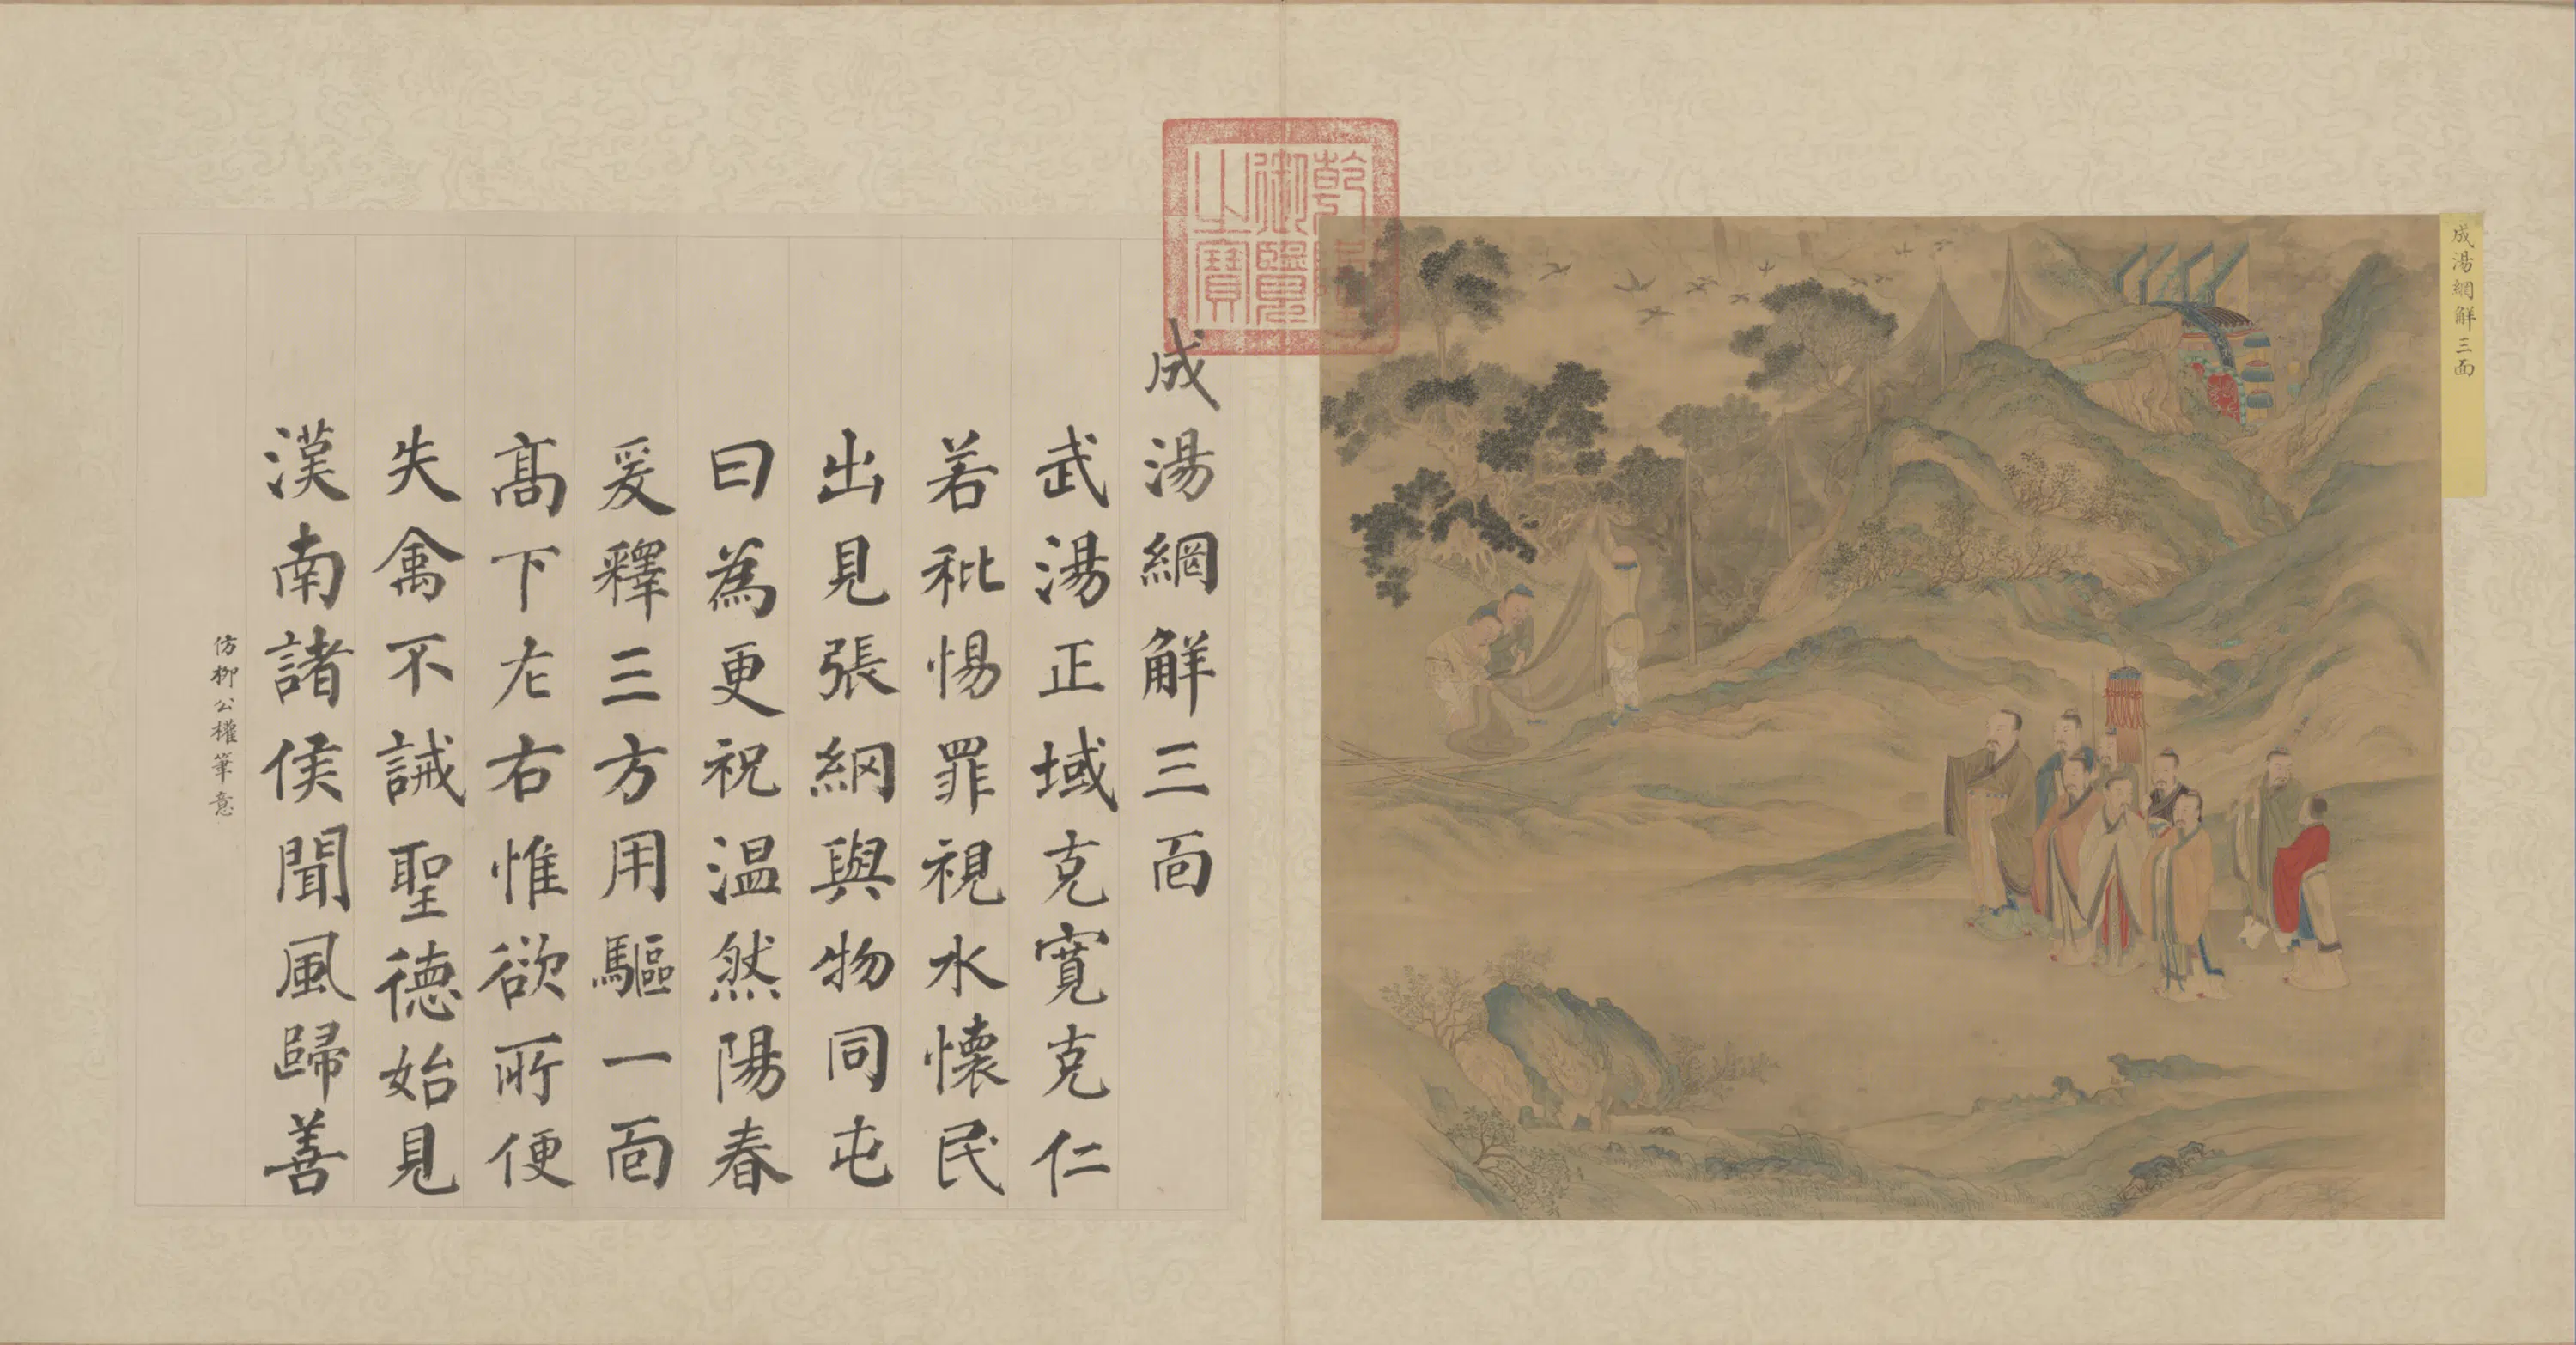 成湯網解三面
乾隆
御覽
之寶
成湯網解三面
武湯正域克寬克仁
若秕惕罪視水懷民
出見張網與物同屯
曰為更祝温然陽春
爰釋三方用驅一面
髙下左右惟欲所便
失禽不誡聖德始見
漢南諸侯聞風歸善
仿柳公權筆意